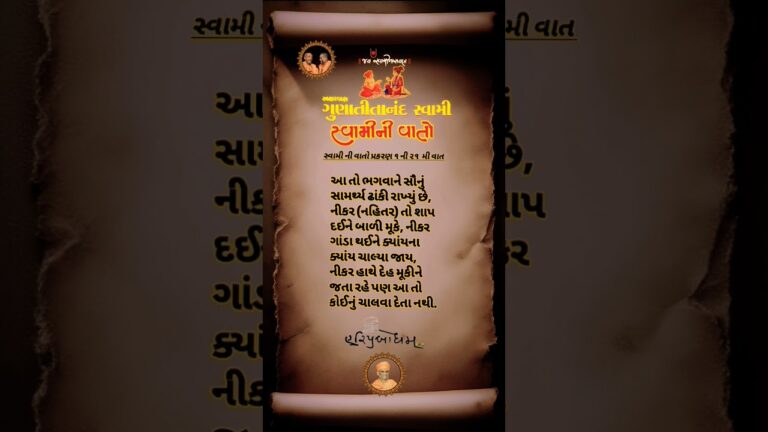 જય સ્વામિનારાયણ
ગુણાતીતાનંદ સ્વામી
સ્વામીની વાતો
સ્વામી ની વાતો પ્રકરણ ૧ ની ૨૧ મી વાત
આ તો ભગવાને સૌનું
સામર્થ્ય ઢાંકી રાખ્યું છે,
નીકર (નહિતર) તો શાપ
દઈને બાળી મૂકે, નીકર
ગાંડા થઈને ક્યાંયના
ક્યાંય ચાલ્યા જાય,
નીકર હાથે દેહ મૂકીને
જતા રહે પણ આ તો
કોઈનું ચાલવા દેતા નથી.
હરિપ્રબોધમ